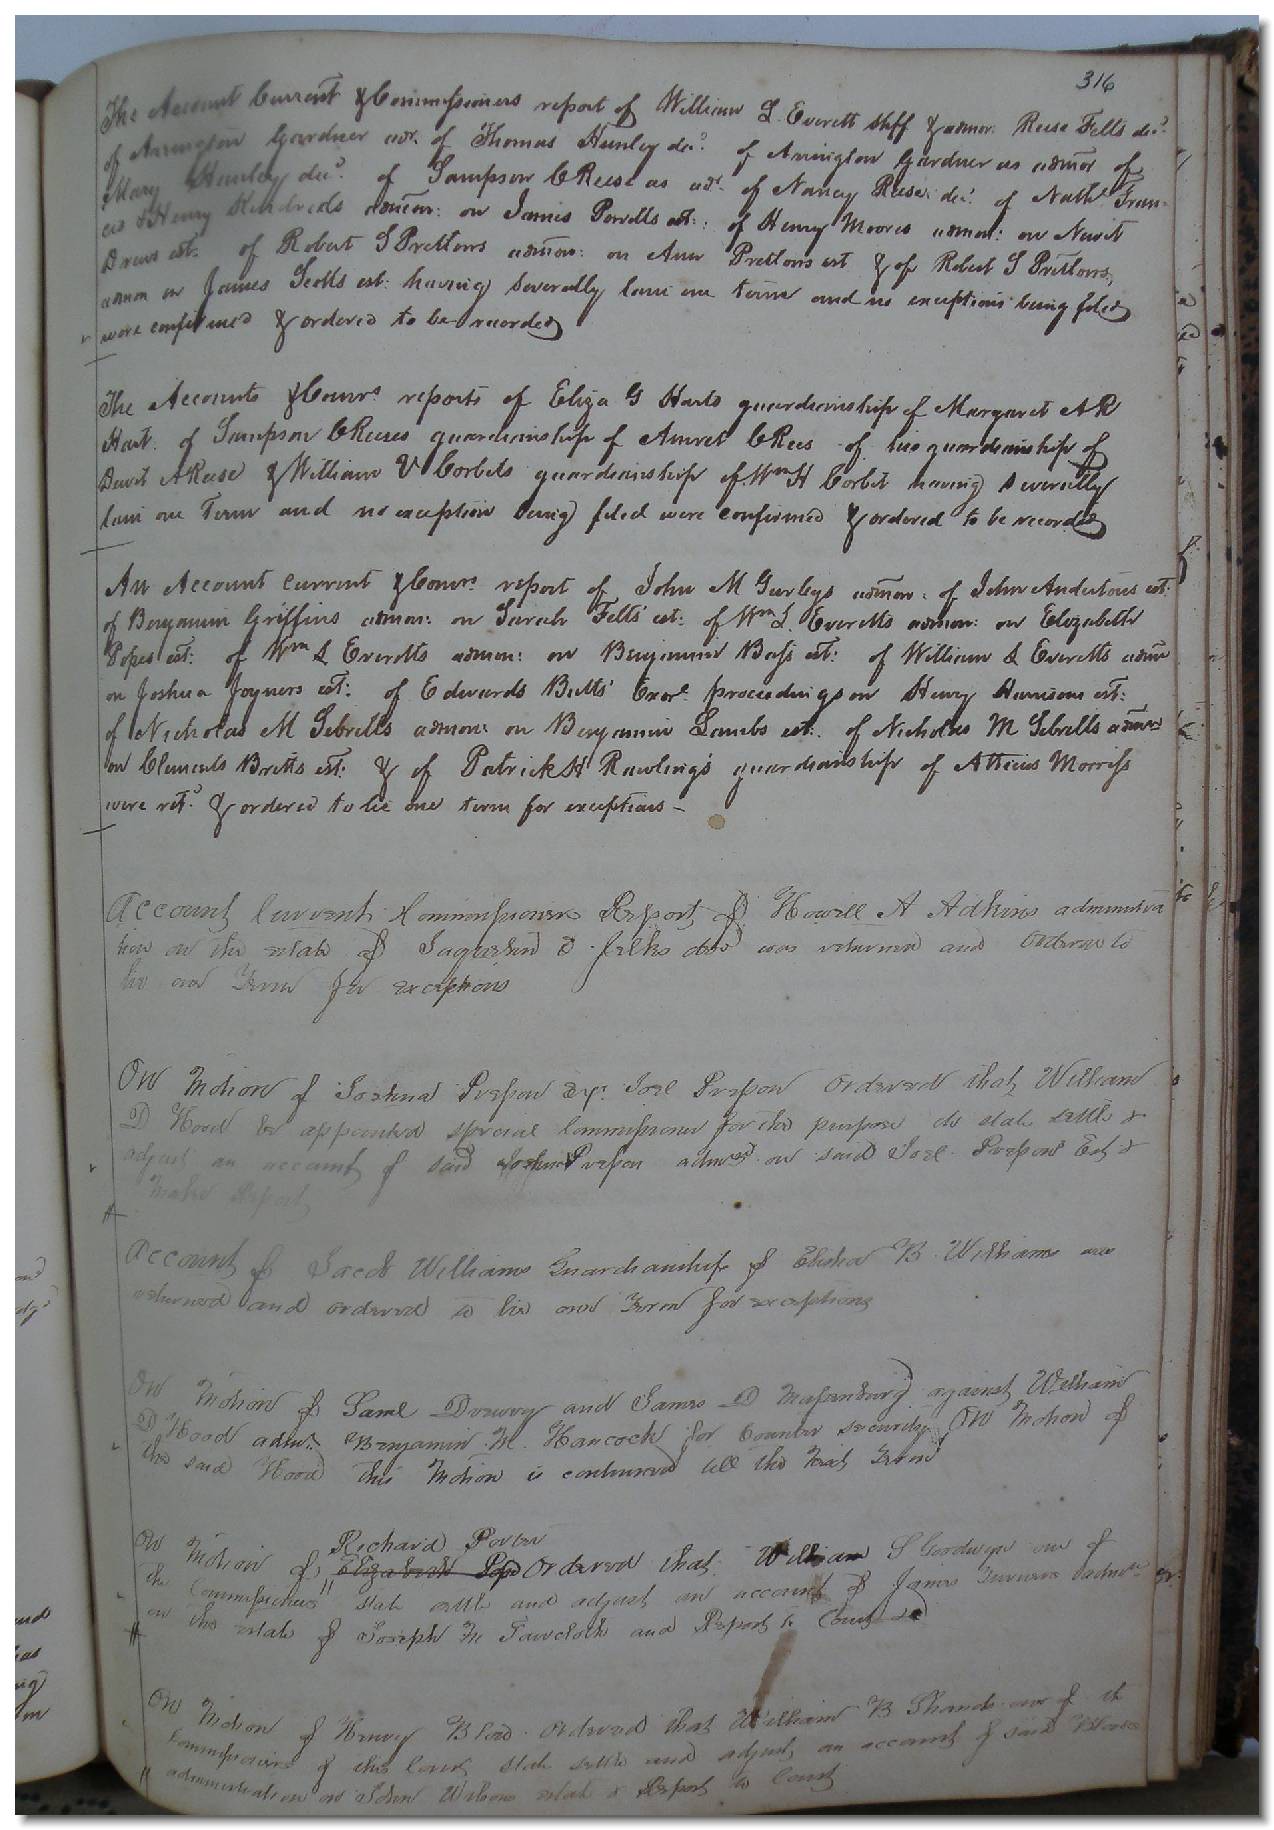 316
The Account Current & Commissioners report of William L. Everett Shff & admor. Reese Fells decd.
of Arrington Gardner adr. of Thomas Hunley decd. of Arrington Gardner as admor of
Mary Hunley decd. of Sampson C Reese as adr. of Nancy Reese decd. of Nathl. Fran-
cis & Henry Kindreds admon: on James Powells est: of Henry Moores admon: on Newit
Drews est. of Robert S Prettons admon: on Ann Prettons est & of Robert S Prettons
admon on James Scotts est: having severally lain one term and no exceptions being filed
were confirmed & ordered to be recorded
The Accounts & Comrs. reports of Eliza G Harts guardianship of Margaret A R
Hart. of Sampson C Reeses guardianship of Amret C Rees of his guardianship of
Dewit A Reese & William V Corbets guardianship of Wm H Corbet having severally
lain one Term and no exception being filed were confirmed & ordered to be recorded
An Account current & Comrs. report of John M Gurleys admon: of John Andertons est:
of Benjamin Griffins admon: on Sarah Fells est: of Wm L. Everetts admon: on Elizabeth
Popes est: of Wm L Everetts admon: on Benjamin Bass est: of William L Everetts admn
on Joshua Joyners est: of Edwards Butts' Exor. proceedings on Henry Harrison est:
of Nicholas M Sebrells admon: on Benjamin Lambs est: of Nicholas M Sebrells admon
on Clements Britts est: & of Patrick H Rawlings guardianship of Atticus Morriss
were retd. & ordered to lie one term for exceptions –
Account Current & Commissioners Report of Howell A Adkins administra
tion on the estate of D. felks decd was returned and Ordered to
lie one Term for exceptions
On Motion of Joshua Presson Ordered that William
D Hood be appointed special Commissioner for the purpose to state settle &
adjust an account of said Joshua Presson admr on said Joel Presson Est &
make Report
Account of Jacob Williams Guardianship of Elisha B. Williams was
returned and ordered to lie one Term for exceptions
On Motion of Saml Drewry and James D Massenburg against William
D Hood admr. Benjamin M. Hancock for Counter security, On Motion of
the said Hood this Motion is continued till the Next Term
Richard Porter
On Motion of Elizabeth Pope Ordered that William S Goodwyn one of
the Commissioners state settle and adjust an account of James admr
on the estate of Joseph M and Report to Court
On Motion of Henry Blow Ordered that William B Shands one of the
Commissioners of this Court state settle and adjust an account of said Blows
administration on John Wilsons estate & Report to Court